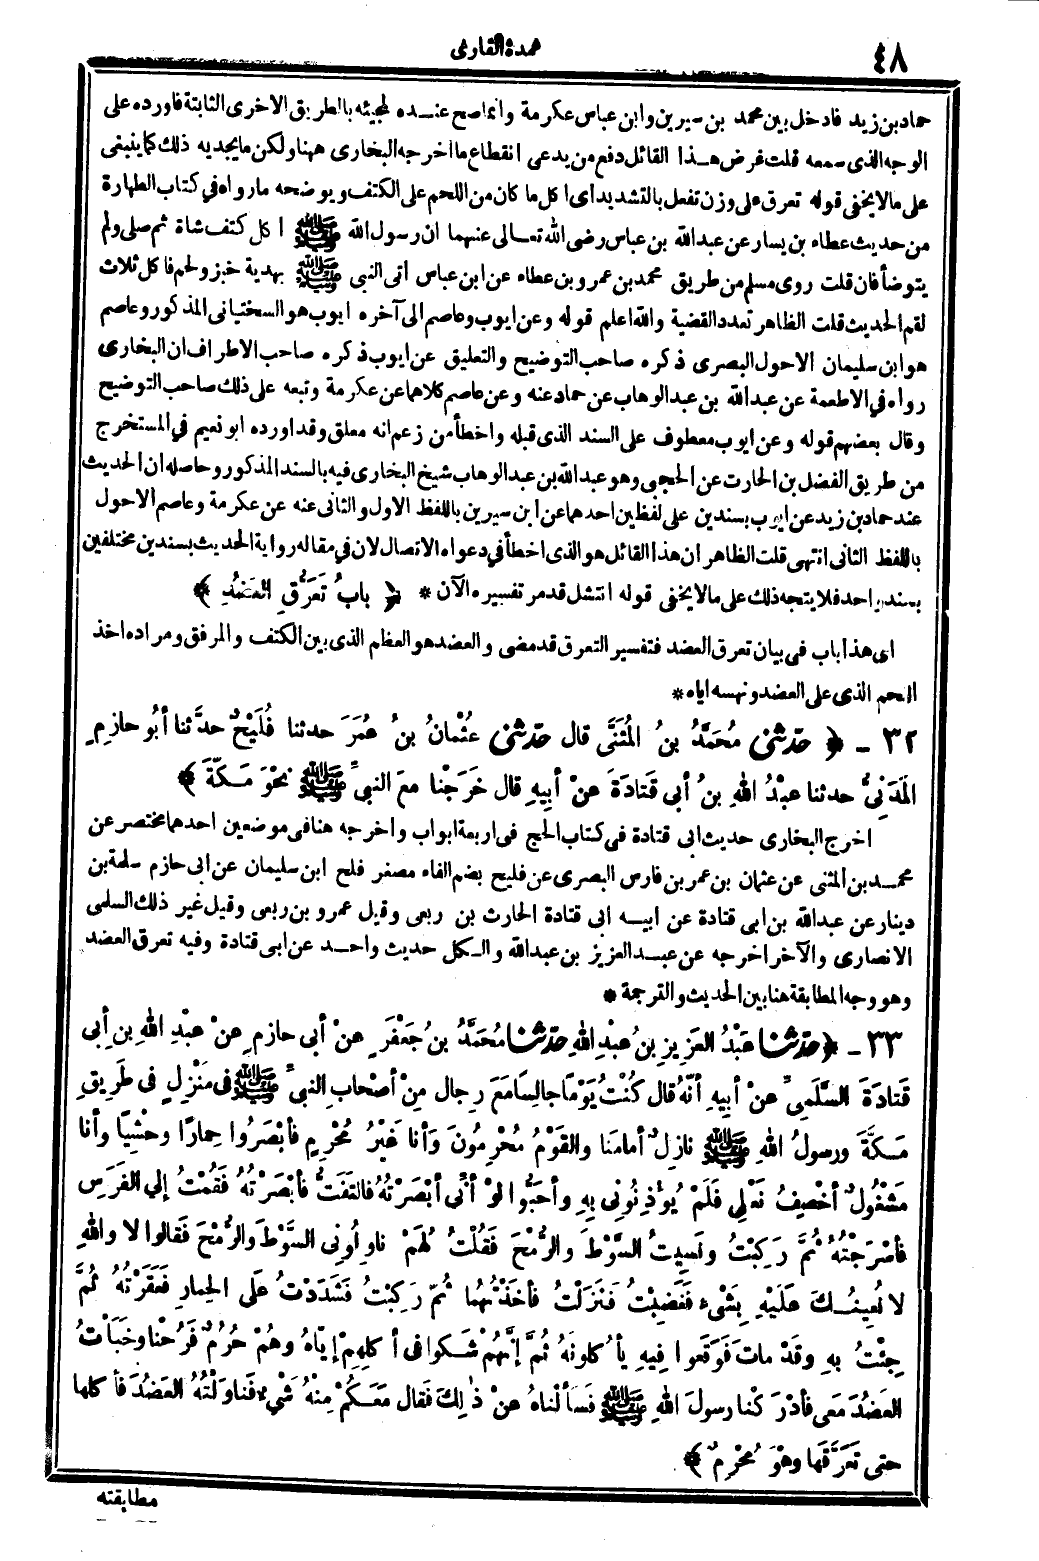 ٤٨
عمدة القارى
حماد بن زيد فادخل بين محمد بن سيرين وابن عباس عكرمة وانما صح عنده لمجيئه بالطريق الاخرى الثابتة فاورده على
الوجه الذى سمعه قلت غرض هذا القائل دفع من يدعى انقطاع ما اخرجه البخارى ههنا ولكن ما يجديه ذلك كما ينبغى
على ما لا يخفى قوله تعرق على وزن تفعل بالتشديد اى اكل ما كان من اللحم على الكتف ويوضحه ما رواه في كتاب الطهارة
من حديث عطاء بن يسار عن عبد الله بن عباس رضى الله تعالى عنهما ان رسول الله ﷺ اكل كتف شاة ثم صلى ولم
يتوضأ فان قلت روى مسلم من طريق محمد بن عمرو بن عطاء عن ابن عباس اتى النبى ﷺ بهدية خبز ولحم فاكل ثلاث
لقم الحديث قلت الظاهر تعدد القضية والله اعلم قوله وعن ايوب وعاصم الى آخره ايوب هو السختيانى المذكور وعاصم
هو ابن سليمان الاحول البصرى ذكره صاحب التوضيح والتعليق عن ايوب ذكره صاحب الاطراف ان البخارى
رواه في الاطعمة عن عبد الله بن عبد الوهاب عن حماد عنه وعن عاصم كلاهما عن عكرمة وتبعه على ذلك صاحب التوضيح
وقال بعضهم قوله وعن ايوب معطوف على السند الذى قبله واخطأ من زعم انه معلق وقد اورده ابو نعيم في المستخرج
من طريق الفضل بن الحارث عن الحجبى وهو عبد الله بن عبد الوهاب شيخ البخارى فيه بالسند المذكور وحاصله ان الحديث
عند حماد بن زيد عن ايوب بسندين على لفظين احدهما عن ابن سيرين باللفظ الاول والثانى عنه عن عكرمة وعاصم الاحول
باللفظ الثانى انتهى قلت الظاهر ان هذا القائل هو الذى اخطأ في دعواه الاتصال لان في مقاله رواية الحديث بسندين مختلفين
بسند واحد فلا يتجه ذلك على ما لا يخفى قوله انتشل قد مر تفسيره الآن * ﴿ بابُ تَعَرُّقِ العَضُدِ ﴾
اى هذا باب فى بيان تعرق العضد فتفسير التعرق قد مضى والعضد هو العظم الذى بين الكتف والمرفق ومراده اخذ
اللحم الذى على العضد ونهسه اياه *
٣٢ - ﴿ حدّثنى مُحَمَّدُ بنُ المُثَنَّى قال حدّثنى عُثْمانُ بنُ عُمَرَ حدثنا فُلَيْحٌ حدَّثنا أبُو حازِمٍ
المَدَنِيُّ حدثنا عبْدُ اللهِ بنُ أبى قَتادَةَ عنْ أبِيهِ قال خَرَجْنا معَ النبىِّ ﷺ نحْوَ مَكّةَ ﴾
اخرج البخارى حديث ابى قتادة فى كتاب الحج فى اربعة ابواب واخرجه هنا فى موضعين احدهما مختصر عن
محمد بن المثنى عن عثمان بن عمر بن فارس البصرى عن فليح بضم الفاء مصغر فلح ابن سليمان عن ابى حازم سلمة بن
دينار عن عبد الله بن ابى قتادة عن ابيه ابى قتادة الحارث بن ربعى وقيل عمرو بن ربعى وقيل غير ذلك السلمى
الانصارى والآخر اخرجه عن عبد العزيز بن عبد الله والكل حديث واحد عن ابى قتادة وفيه تعرق العضد
وهو وجه المطابقة هنا بين الحديث والترجمة *
٣٣ - ﴿ حدّثنا عَبْدُ العَزِيزِ بنُ عبْدِ اللهِ حدّثنا مُحَمَّدُ بنُ جَعْفَرٍ عنْ أبى حازِمٍ عنْ عبْدِ اللهِ بنِ أبى
قَتادَةَ السَّلَمِىِّ عنْ أبِيهِ أنّهُ قال كُنْتُ يَوْمًا جالِسًا مَعَ رِجالٍ مِنْ أصْحابِ النبىِّ ﷺ فى مَنْزِلٍ فى طَرِيقِ
مَكّةَ ورسولُ اللهِ ﷺ نازِلٌ أمامَنا والقَوْمُ مُحْرِمُونَ وأنا غَيْرُ مُحْرِمٍ فأبْصَرُوا حِمارًا وحْشِيًّا وأنا
مَشْغُولٌ أخْصِفُ نَعْلِى فَلَمْ يُؤْذِنُونِى بِهِ وأحَبُّوا لوْ أنِّى أبْصَرْتُهُ فالتَفَتُّ فأبْصَرْتُهُ فَقُمْتُ إلى الفَرَسِ
فأسْرَجْتُهُ ثُمَّ رَكِبْتُ ونَسِيتُ السَّوْطَ والرُّمْحَ فَقُلْتُ لَهُمْ ناوِلُونِى السَّوْطَ والرُّمْحَ فَقالُوا لا واللهِ
لا نُعِينُكَ عَلَيْهِ بِشَىْءٍ فَغَضِبْتُ فَنَزَلْتُ فأخَذْتُهُما ثُمَّ رَكِبْتُ فَشَدَدْتُ عَلَى الحِمارِ فَعَقَرْتُهُ ثُمَّ
جِئْتُ بِهِ وقَدْ ماتَ فَوَقَعُوا فِيهِ يأكُلونَهُ ثُمَّ إنَّهُمْ شَكُّوا فى أكْلِهِمْ إيّاهُ وهُمْ حُرُمٌ فَرُحْنا وخَبَأْتُ
العَضُدَ مَعِى فأدْرَكْنا رسولَ اللهِ ﷺ فَسَألْناهُ عنْ ذٰلِكَ فَقال مَعَكُمْ مِنْهُ شَىْءٌ فَناوَلْتُهُ العَضُدَ فأكَلَها
حتى تَعَرَّقَها وهْوَ مُحْرِمٌ ﴾
مطابقته